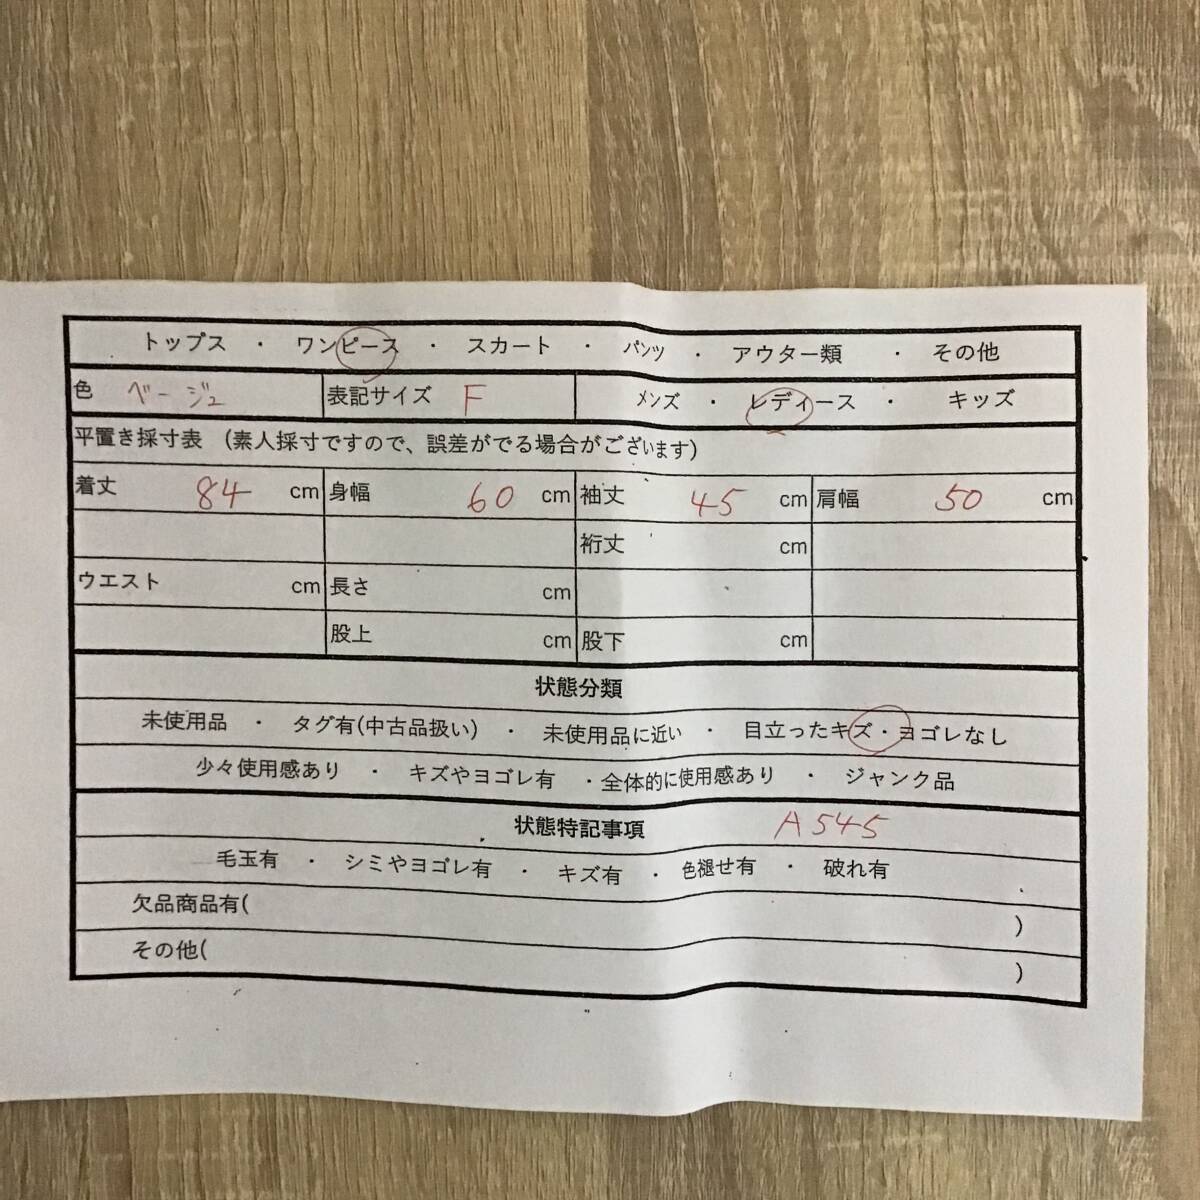 トップス ・ ワンピース ・ スカート ・ パンツ ・ アウター類 ・ その他
色 ベージュ 表記サイズ F メンズ ・ レディース ・ キッズ
平置き採寸表 (素人採寸ですので、誤差がでる場合がございます)
着丈 84 cm 身幅 60 cm 袖丈 45 cm 肩幅 50 cm
裄丈 cm
ウエスト cm 長さ cm
股上 cm 股下 cm
状態分類
未使用品 ・ タグ有(中古品扱い) ・ 未使用品に近い ・ 目立ったキズ・ヨゴレなし
少々使用感あり ・ キズやヨゴレ有 ・全体的に使用感あり ・ ジャンク品
状態特記事項 A545
毛玉有 ・ シミやヨゴレ有 ・ キズ有 ・ 色褪せ有 ・ 破れ有
欠品商品有( )
その他( )